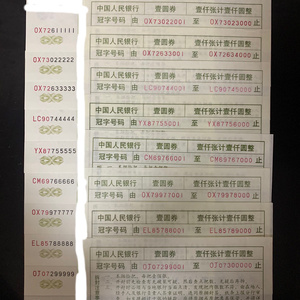 OX72611111
OX73022222
OX72633333
LC90744444
YX87755555
CM69766666
OX79977777
EL85788888
OJ07299999
中国人民银行 壹圆券 壹仟张计壹仟圆整
冠字号码 由 OX73022001 至 OX73023000 止
中国人民银行 壹圆券 壹仟张计壹仟圆整
冠字号码 由 OX72633001 至 OX72634000 止
中国人民银行 壹圆券 壹仟张计壹仟圆整
冠字号码 由 LC90744001 至 LC90745000 止
中国人民银行 壹圆券 壹仟张计壹仟圆整
冠字号码 由 YX87755001 至 YX87756000 止
中国人民银行 壹圆券 壹仟张计壹仟圆整
冠字号码 由 CM69766001 至 CM69767000 止
中国人民银行 壹圆券 壹仟张计壹仟圆整
冠字号码 由 OX79977001 至 OX79978000 止
中国人民银行 壹圆券 壹仟张计壹仟圆整
冠字号码 由 EL85788001 至 EL85789000 止
中国人民银行 壹圆券 壹仟张计壹仟圆整
冠字号码 由 OJ07299001 至 OJ07300000 止